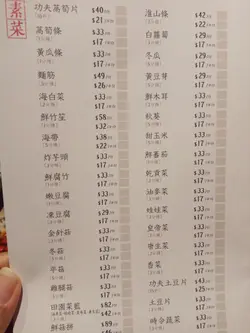 素菜
功夫萵筍片 $40
$21
萵筍條 $33
$17
黃瓜條 $33
$17
麵筋 $49
$26
海白菜 $33
$17
鮮竹笙 $58
$32
海帶 $38
$22
炸芋頭 $33
$17
鮮腐竹 $33
$17
嫩豆腐 $33
$17
凍豆腐 $29
$17
金針菇 $33
$17
冬菇 $33
$17
平菇 $33
$17
雞腿菇 $33
$17
田園菜籃 $82
$42
鮮菇拼 $89
淮山條 $42
$23
白蘿蔔 $29
$17
冬瓜 $29
$17
黃豆芽 $29
$17
鮮木耳 $33
$17
秋葵 $33
$17
甜玉米 $33
$17
鮮蕃茄 $33
$17
乾貢菜 $33
$17
油麥菜 $33
$17
娃娃菜 $33
$17
皇帝菜 $33
$17
唐生菜 $33
$17
香菜 $33
$17
功夫土豆片 $42
$25
土豆片 $33
$17
時令蔬菜 $33
$17